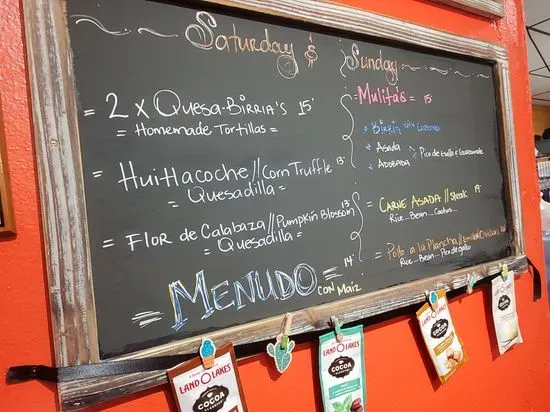 Saturday's
= 2 x Quesa-Birria's 15
= Homemade Tortillas =
= Huitlacoche // Corn Truffle 13
= Quesadilla =
= Flor de Calabaza // Pumpkin Blossom 13
= Quesadilla =
= MENUDO = 14
con Maiz
Sunday
= Mulita's = 15
Birria
Asada
Adobada
Pico de Gallo & Guacamole
= Carne Asada // Steak
Rice - Bean - Cactus
= Pollo a la Plancha //
Rice - Bean - Pico de gallo
LAND O LAKES
COCOA
LAND O LAKES
COCOA
LAND O LAKES
COCOA
COCOA